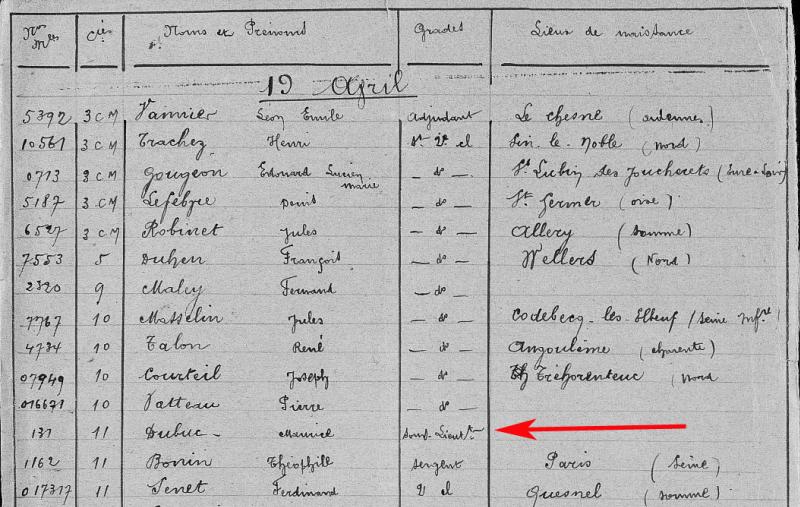 Nos Mles Cies Noms et Prénoms Grades Lieux de naissance
19 Avril
5392 3 CM Vannier Léon Emile Adjudant Le Chesne (ardennes)
10561 3 CM Trachez Henri St 2e cl Sin-le-Noble (Nord)
0713 3 CM Gougeon Edouard Lucien Marie — d° — St Lubin des Joucherets (Eure & Loir)
5187 3 CM Lefebvre Denis — d° — St Germer (oise)
6527 3 CM Robinet Jules — d° — Allery (somme)
7553 5 Duhen François — d° — Wellers (Nord)
2320 9 Fernand — d° —
7767 10 Masselin Jules — d° — Codebecq-les-Elbeuf (Seine Infre)
4734 10 Talon René — d° — Angoulême (charente)
07949 10 Courteil Joseph — d° — Tréhorenteuc Nord
016671 10 Vatteau Pierre — d° —
131 11 Dubuc Maurice Sous-Lieutt
1162 11 Bonin Théophile Sergent Paris (Seine)
017317 11 Senet Ferdinand 2e cl Quesnel (somme)